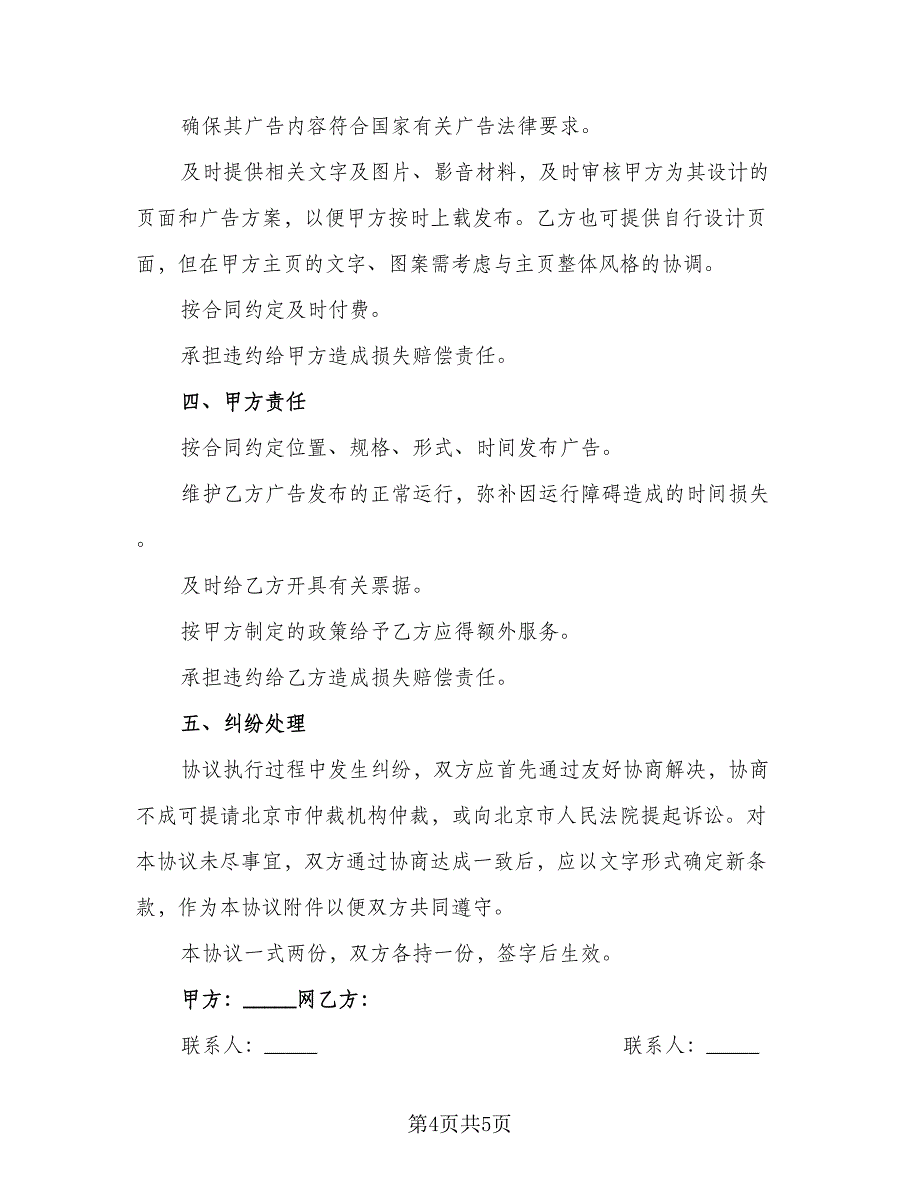 确保其广告内容符合国家有关广告法律要求。
及时提供相关文字及图片、影音材料，及时审核甲方为其设计的
页面和广告方案，以便甲方按时上载发布。乙方也可提供自行设计页
面，但在甲方主页的文字、图案需考虑与主页整体风格的协调。
按合同约定及时付费。
承担违约给甲方造成损失赔偿责任。
四、甲方责任
按合同约定位置、规格、形式、时间发布广告。
维护乙方广告发布的正常运行，弥补因运行障碍造成的时间损失
。
及时给乙方开具有关票据。
按甲方制定的政策给予乙方应得额外服务。
承担违约给乙方造成损失赔偿责任。
五、纠纷处理
协议执行过程中发生纠纷，双方应首先通过友好协商解决，协商
不成可提请北京市仲裁机构仲裁，或向北京市人民法院提起诉讼。对
本协议未尽事宜，双方通过协商达成一致后，应以文字形式确定新条
款，作为本协议附件以便双方共同遵守。
本协议一式两份，双方各持一份，签字后生效。
甲方：_____网乙方：
联系人：_____ 联系人：_____
第4页共5页